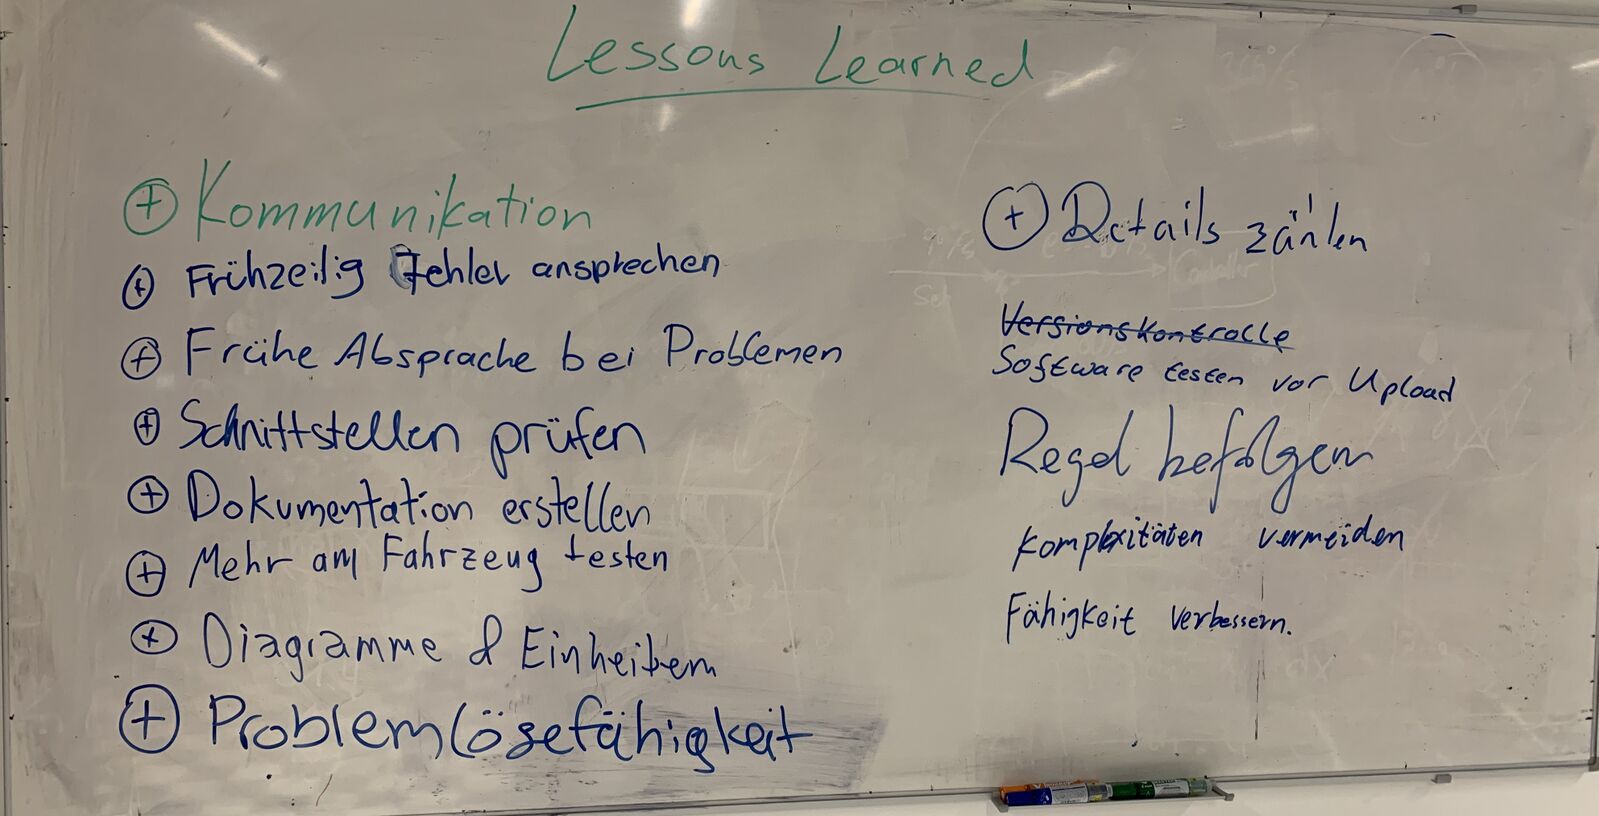 Lessons Learned
⊕ Kommunikation
⊕ Frühzeilig Fehler ansprechen
⊕ Frühe Absprache bei Problemen
⊕ Schnittstellen prüfen
⊕ Dokumentation erstellen
⊕ Mehr am Fahrzeug testen
⊕ Diagramme & Einheiten
⊕ Problemlösefähigkeit
⊕ Details zählen
Versionskontrolle
Software testen vor Upload
Regel befolgen
Komplexitäten vermeiden
Fähigkeit verbessern.